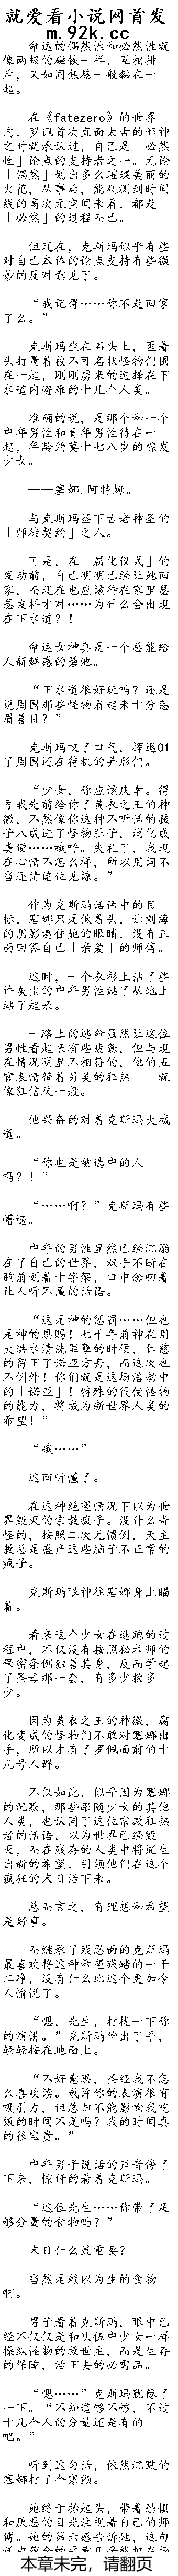 就爱看小说网首发
m.92k.cc
命运的偶然性和必然性就
像两极的磁铁一样，互相排
斥，又如同焦糖一般黏在一
起。
在《fatezero》的世界
内，罗佩首次直面太古的邪神
之时就承认过，自己是「必然
性」论点的支持者之一。无论
「偶然」划出多么璀璨美丽的
火花，从事后，能观测到时间
线的高次元空间来看，都是
「必然」的过程而已。
但现在，克斯玛似乎有些
对自己本体的论点支持有些微
妙的反对意见了。
“我记得……你不是回家
了么。”
克斯玛坐在石头上，歪着
头打量着被不可名状怪物们围
在一起，刚刚虏来的选择在下
水道内避难的十几个人类。
准确的说，是那个和一个
中年男性和青年男性待在一
起，年龄约莫十七八岁的棕发
少女。
——塞娜.阿特姆。
与克斯玛签下古老神圣的
「师徒契约」之人。
可是，在「腐化仪式」的
发动前，自己明明已经让她回
家，而现在也应该待在家里瑟
瑟发抖才对……为什么会出现
在下水道？！
命运女神真是一个总能给
人新鲜感的碧池。
“下水道很好玩吗？还是
说周围那些怪物看起来十分慈
眉善目？”
克斯玛叹了口气，挥退01
了周围还在待机的异形们。
“少女，你应该庆幸。得
亏我先前给你了黄衣之王的神
徽，不然像你这种不听话的孩
子八成进了怪物肚子，消化成
粪便……哦呀。失礼了，我现
在心情不怎么样，所以用词不
当还请诸位见谅。”
作为克斯玛话语中的目
标，塞娜只是低着头，让刘海
的阴影遮住她的眼睛，没有正
面回答自己「亲爱」的师傅。
这时，一个衣衫上沾了些
许灰尘的中年男性站了从地上
站了起来。
一路上的逃命虽然让这位
男性看起来有些疲惫，但与现
在情况明显不相符的，他的五
官表情带着另类的狂热——就
像狂信徒一般。
他兴奋的对着克斯玛大喊
道。
“你也是被选中的人
吗？！”
“……啊？”克斯玛有些
懵逼。
中年的男性显然已经沉溺
在了自己的世界，双手不断在
胸前划着十字架，口中念叨着
让人听不懂的话语。
“这是神的惩罚……但也
是神的恩赐！七千年前神在用
大洪水清洗罪孽的时候，仁慈
的留下了诺亚方舟，而这次也
不例外！你们就是这场浩劫中
的「诺亚」！特殊的役使怪物
的能力，将成为新世界人类的
希望！”
“哦……”
这回听懂了。
在这种绝望情况下以为世
界毁灭的宗教疯子。没什么奇
怪的，按照二次元惯例，天主
教总是盛产这些脑子不正常的
疯子。
克斯玛眼神往塞娜身上瞄
着。
看来这个少女在逃跑的过
程中，不仅没有按照秘术师的
保密条例独善其身，反而学起
了圣母那一套，有多少救多
少。
因为黄衣之王的神徽，腐
化变成的怪物们不敢对塞娜出
手，所以才有了罗佩面前的十
几号人群。
不仅如此，似乎因为塞娜
的沉默，那些跟随少女的其他
人类，也认同了这位宗教狂热
者的话语，以为世界已经毁
灭，而在残存的人类中将诞生
出新的希望，引领他们在这个
疯狂的末日活下来。
总而言之，有理想和希望
是好事。
而继承了残忍面的克斯玛
最喜欢将这种希望践踏的一干
二净，没有什么比这个更加令
人愉悦了。
“嗯，先生，打扰一下你
的演讲。”克斯玛伸出了手，
轻轻按在地面上。
“不好意思，圣经我不怎
么喜欢读。或许你的表演很有
吸引力，但总归不能影响我吃
饭的时间不是吗？我的时间真
的很宝贵。”
中年男子说话的声音停了
下来，惊讶的看着克斯玛。
“这位先生……你带了足
够分量的食物吗？”
末日什么最重要？
当然是赖以为生的食物
啊。
男子看着克斯玛，眼中已
经不仅仅是和队伍中少女一样
操纵怪物的救世主，而是生存
的保障，活下去的必需品。
“嗯……”克斯玛犹豫了
一下。“不知道够不够，不过
十几个人的分量还是有的
吧。”
听到这句话，依然沉默的
塞娜打了个寒颤。
她终于抬起头，带着恐惧
和厌恶的目光注视着自己的师
傅。她的第六感告诉她，这句
本章未完，请翻页